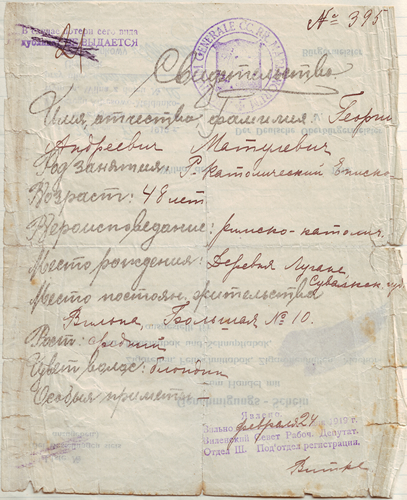 № 395
В случае потери сего вида
НЕ ВЫДАЕТСЯ
GENERALE
Свидетельство
Имя, отчество, фамилия: Георгий
Андреевич Матулевич
Род занятия: Р. Католический Епископ
Возраст: 48 лет
Вероисповедание: римско-католич.
Место рождения: Деревня Лугане,
Сувалкск. губ
Место постоян. жительства
Вильна, Большая № 10.
Рост: средний
Цвет волос: блондин
Особыя приметы —
Явлено.
Вильно февраля 24 1919 г.
Виленский Совет Рабоч. Депутат.
Отдел III. Под'отдел регистрации.